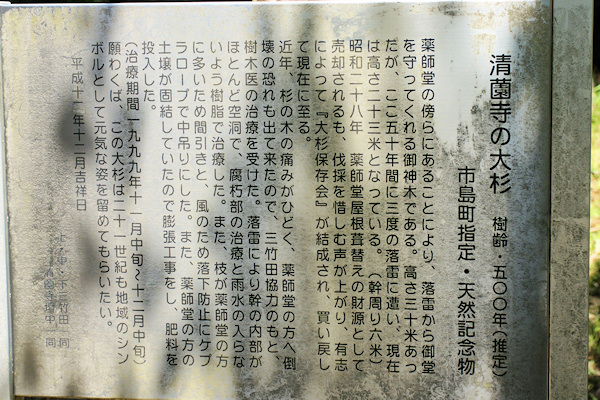 清薗寺の大杉 樹齢・五〇〇年(推定)
市島町指定・天然記念物
薬師堂の傍らにあることにより、落雷から御堂
を守ってくれる御神木である。高さ三十米あっ
たが、ここ五十年間に三度の落雷に遭い、現在
は高さ二十三米となっている。(幹周り六米)
昭和二十八年 薬師堂屋根葺替えの財源として
売却されるも、伐採を惜しむ声が上がり、有志
によって『大杉保存会』が結成され、買い戻し
て現在に至る。
近年、杉の木の痛みがひどく、薬師堂の方へ倒
壊の恐れも出て来たので、三竹田協力のもと、
樹木医の治療を受けた。落雷により幹の内部が
ほとんど空洞で、腐朽部の治療と雨水の入らな
いよう樹脂で治療した。また、枝が薬師堂の方
に多いため間引きと、風のため落下防止にケブ
ラロープで中吊りにした。また、薬師堂の方の
土壌が固結していたので膨張工事をし、肥料を
投入した。
(治療期間一九九九年十一月中旬〜十二月中旬)
願わくば、この大杉は二十一世紀も地域のシン
ボルとして元気な姿を留めてもらいたい。
平成十一年十二月吉祥日
中・下三竹田 同
清薗寺檀中 同